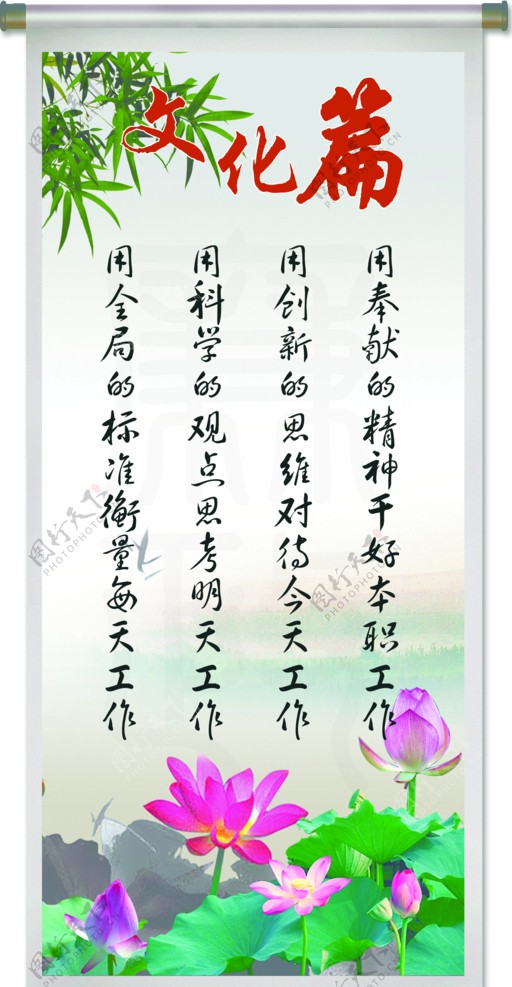 文化篇
用奉献的精神干好本职工作
用创新的思维对待今天工作
用科学的观点思考明天工作
用全局的标准衡量每天工作
图行天下
PHOTOPHOTO.CN